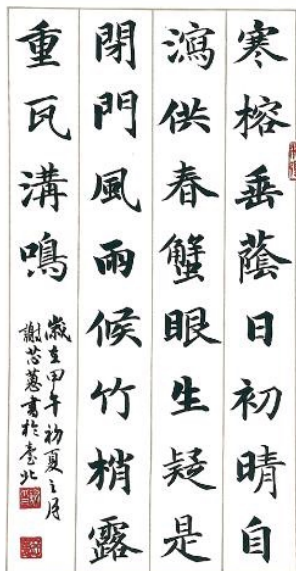 寒榕垂蔭日初晴自
瀉供春蟹眼生疑是
閉門風雨候竹梢露
重瓦溝鳴
歲在甲午初夏之月
謝芯蕙書於臺北